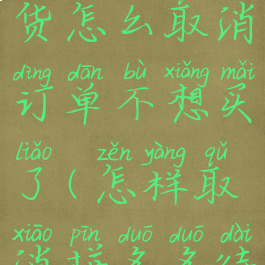 货怎么取消
dìng dān bù xiǎng mǎi
订单不想买
liǎo zěn yàng qǔ
了(怎样取
xiāo pīn duō duō dài
消拼多多待